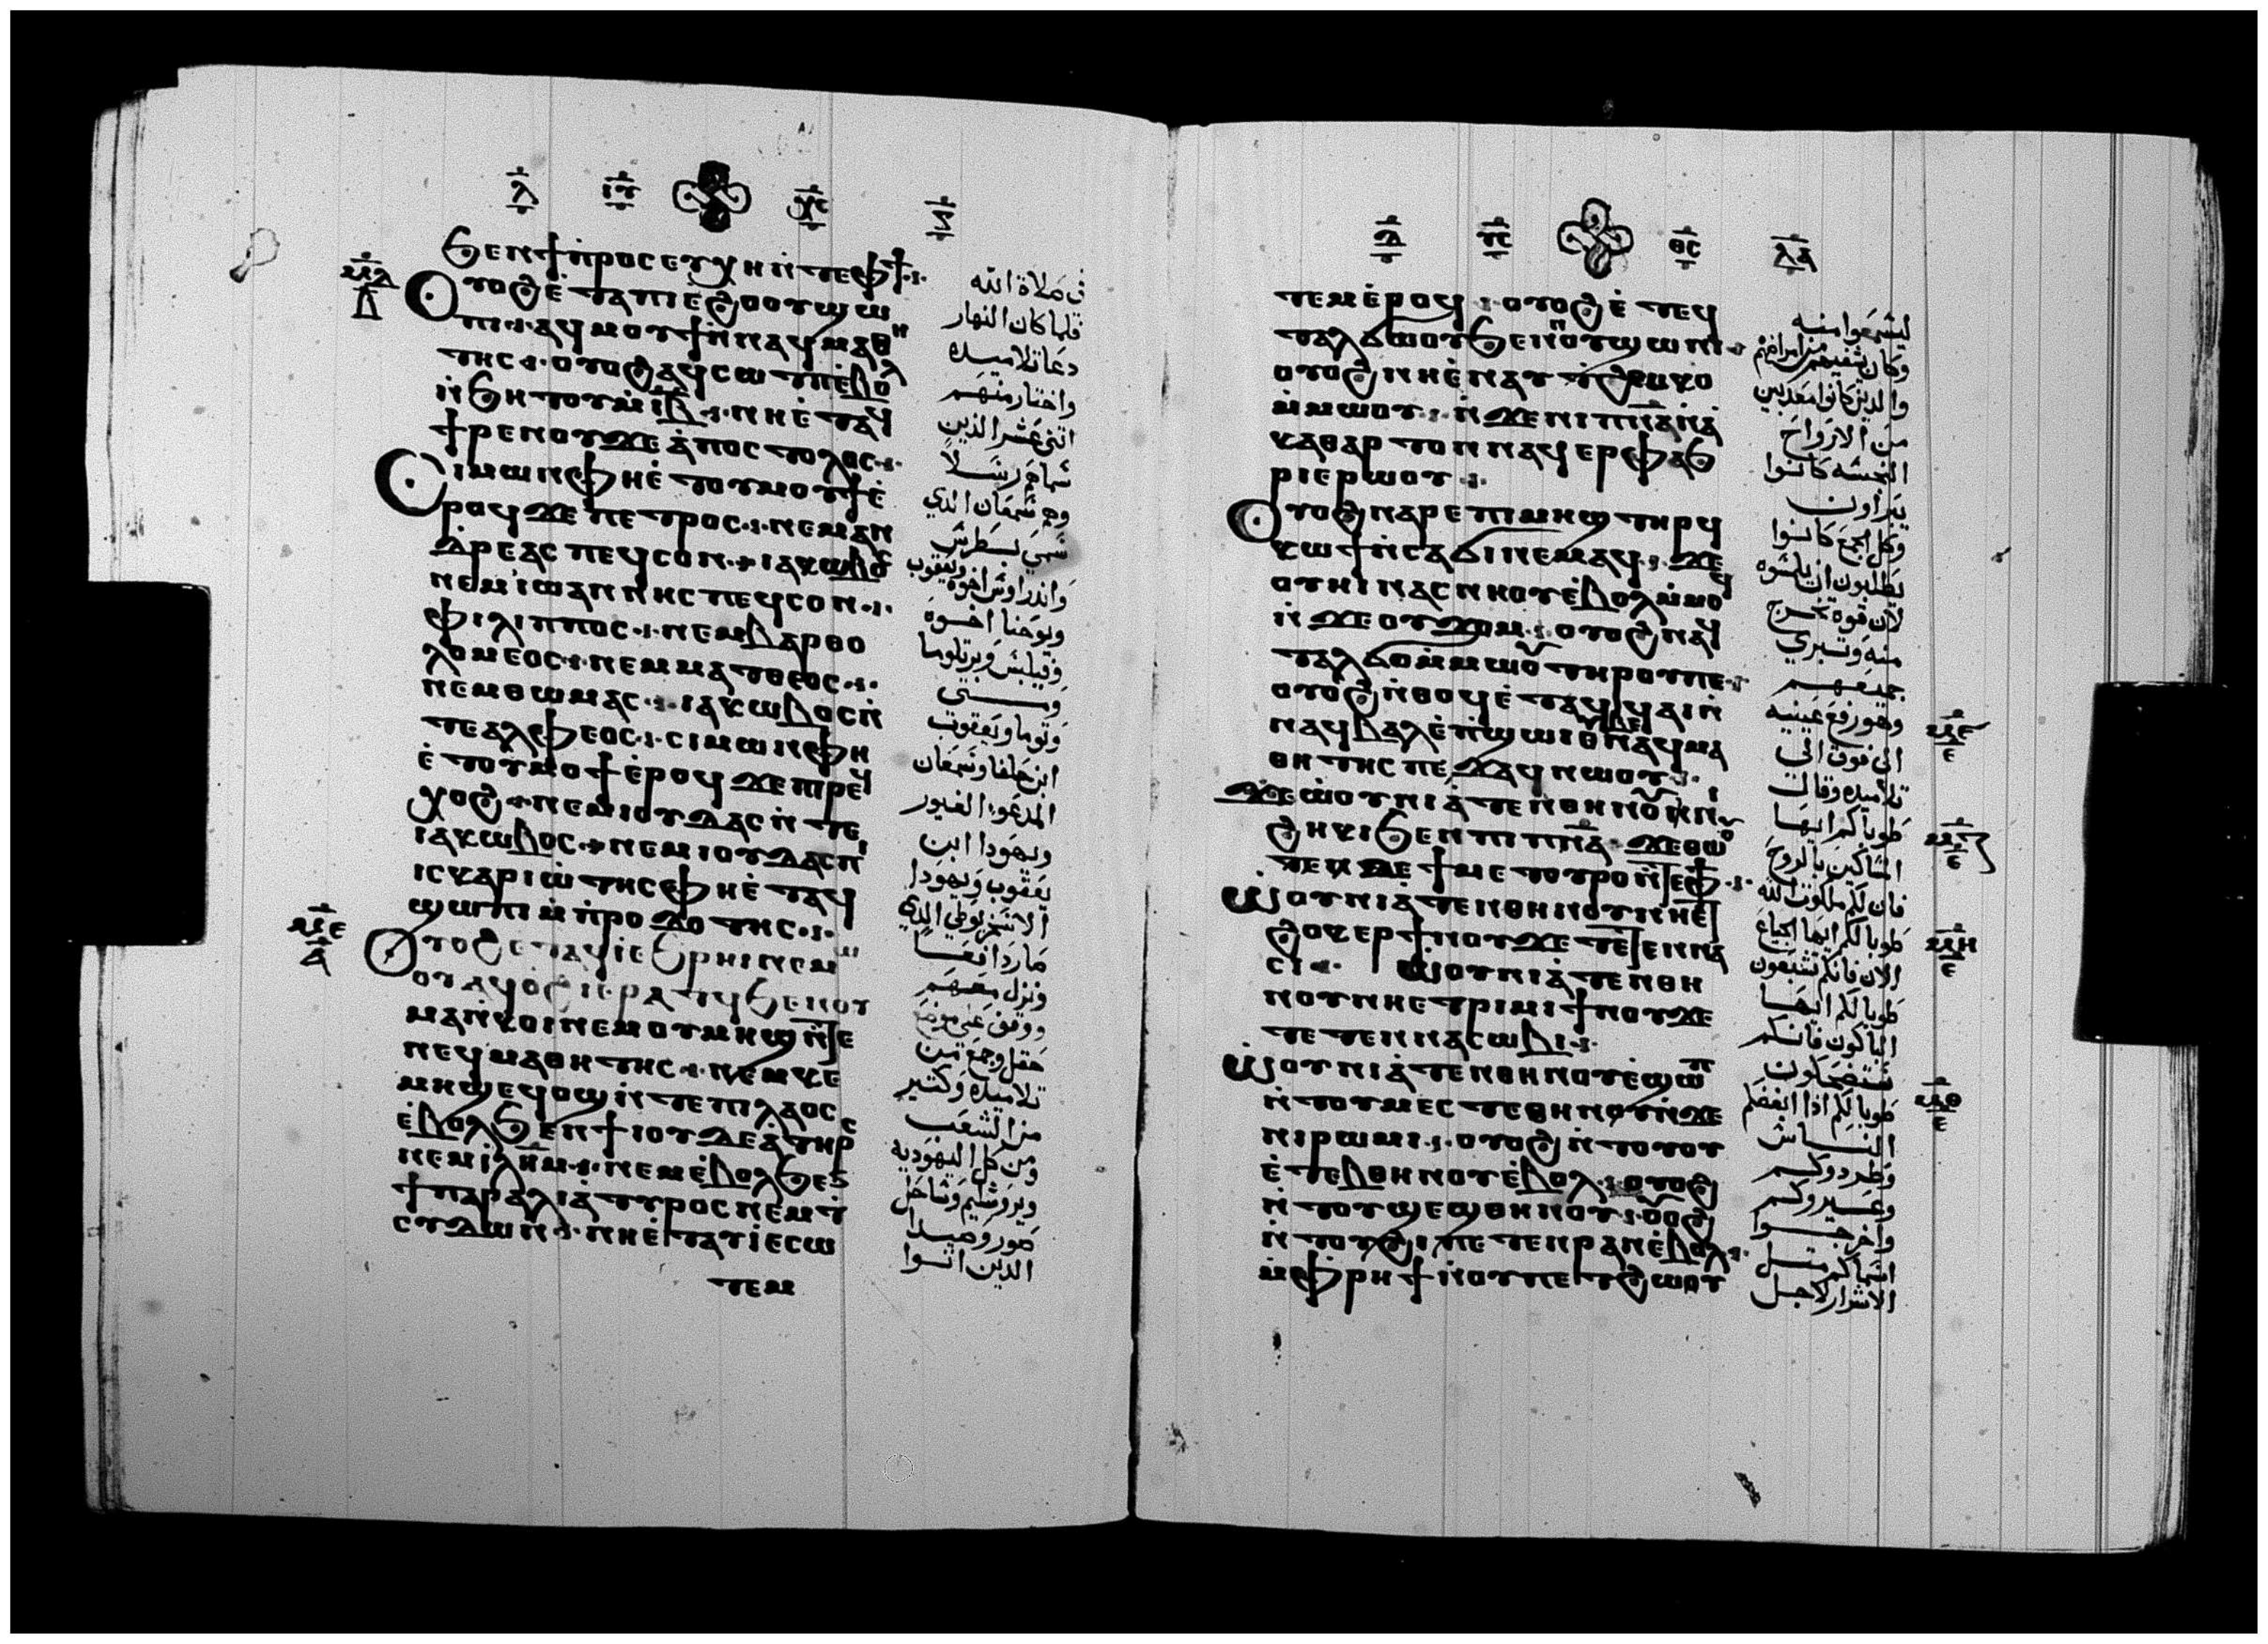 ϧⲉⲛϯⲡⲣⲟⲥⲉⲩⲭⲏⲛ̇ⲧⲉⲫϯ
ⲟⲩⲟϩⲉ̇ⲧⲁⲡⲓⲉϩⲟⲟⲩϣⲱ
ⲡⲓ ⲁϥⲙⲟⲩϯⲛ̇ⲛⲁϥⲙⲁⲑⲏ
ⲧⲏⲥ ⲟⲩⲟϩⲁϥⲥⲱⲧⲡⲉ̇ⲃⲟⲗ
ⲛ̇ϧⲏⲧⲟⲩⲙ̇ⲓⲃ̅ ⲛⲏⲉ̇ⲧⲁϥ
ϯⲣⲉⲛⲟⲩϫⲉⲁ̇ⲡⲟⲥⲧⲟⲗⲟⲥ
ⲥⲓⲙⲱⲛⲫⲏⲉ̇ⲧⲟⲩⲙⲟⲩϯⲉ̇
ⲣⲟϥϫⲉⲡⲉⲧⲣⲟⲥ ⲛⲉⲙⲁⲛ
ⲇⲣⲉⲁⲥⲡⲉϥⲥⲟⲛ ⲓⲁⲕⲱⲃⲟⲥ
ⲛⲉⲙⲓⲱⲁⲛⲛⲏⲥⲡⲉϥⲥⲟⲛ
ⲫⲓⲗⲓⲡⲡⲟⲥ ⲛⲉⲙⲃⲁⲣⲑⲟ
ⲗⲟⲙⲉⲟⲥ ⲛⲉⲙⲙⲁⲧⲑⲉⲟⲥ
ⲛⲉⲙⲑⲱⲙⲁⲥ ⲓⲁⲕⲱⲃⲟⲥⲛ̇
ⲧⲉⲁⲗⲫⲉⲟⲥ ⲥⲓⲙⲱⲛⲫⲏ
ⲉ̇ⲧⲟⲩⲙⲟϯⲉ̇ⲣⲟϥϫⲉⲡⲓⲣⲉϥ
ⲭⲟϩ ⲛⲉⲙⲓⲟⲩⲇⲁⲥⲛ̇ⲧⲉ
ⲓⲁⲕⲱⲃⲟⲥ ⲛⲉⲙⲓⲟⲩⲇⲁⲥⲡⲓ
ⲓⲥⲕⲁⲣⲓⲱ̇ⲧⲏⲥⲫⲏⲉ̇ⲧⲁϥ
ϣⲱⲡⲓⲙ̇ⲡ̇ⲣⲟⲇⲟⲧⲏⲥ
ⲟⲩⲟϩⲉⲧⲁϥⲓ̇ⲉϧⲣⲏⲓⲛⲉⲙⲱ
ⲟⲩⲁϥⲟϩⲓⲉⲣⲁⲧϥϧⲉⲛⲟⲩ
ⲙⲁⲛ̇ⲕⲟⲓⲛⲉⲙⲟⲩⲙⲏϣⲛ̇ⲧⲉ
ⲛⲉϥⲙⲁⲑⲏⲧⲏⲥ ⲛⲉⲙⲕⲉ
ⲙⲏϣⲉϥⲟϣⲛ̇ⲧⲉⲡⲓⲗⲁⲟⲥ
ⲉ̇ⲃⲟⲗϧⲉⲛϯⲓⲟⲩⲇⲉⲁ̇ⲧⲏⲣⲥ
ⲛⲉⲙⲓ̇ⲗⲏⲙ ⲛⲉⲙⲉ̇ⲃⲟⲗϧⲉⲛ
ϯⲡⲁⲣⲁⲗⲓⲁ̇ⲧⲩⲣⲟⲥⲛⲉⲙⲧ
ⲥⲩⲇⲱⲛ ⲛⲏⲉ̇ⲧⲁⲩⲓ̇ⲉⲥⲱ
ⲧⲉⲙ
في صلاة الله
فلما كان النهار
دعا تلاميذه
واختار منهم
اثنى عشر الذين
سماهم رسلا
وهم شمعان الذي
سمي بطرس
واندراوس اخوه ويعقوب
ويوحنا اخوه
وفيلبس وبرتلوما
ومتى
وتوما ويعقوب
ابن حلفا وشمعان
المدعو الغيور
ويهودا ابن
يعقوب ويهودا
الاسخريوطي الذي
صار دافعا
ونزل معهم
ووقف في موضع
حقل وجمع من
تلاميذه وكثير
من الشعب
من كل اليهودية
ويروشليم وساحل
صور وصيدا
الذين اتوا
ⲧⲉⲙⲉ̇ⲣⲟϥ ⲟⲩⲟϩⲉ̇ⲧⲉϥ
ⲧⲁⲗϭⲱⲟⲩϧⲉⲛⲛⲟⲩϣⲱⲛⲓ
ⲟⲩⲟϩⲛⲏⲉ̇ⲛⲁⲩⲧϩⲉⲙⲕⲟ
ⲙ̇ⲙⲱⲟⲩ ⲛ̇ϫⲉⲛⲓⲡⲛ̅ⲁ̅ⲛ̇ⲁ̇
ⲕⲁⲑⲁⲣⲧⲟⲛⲛⲁϥⲉⲣⲫⲁϧ
ⲣⲓⲉⲣⲱⲟⲩ
ⲟⲩⲟϩⲛⲁⲣⲉⲡⲓⲙⲏϣⲧⲏⲣϥ
ⲕⲱϯⲛ̇ⲥⲁϭⲓⲛⲉⲙⲁϥ ϫⲉ
ⲟⲩⲏⲓⲛⲁⲥⲛⲏⲟⲩⲉ̇ⲃⲟⲗⲙ̇ⲙⲟϥ
ⲛ̇ϫⲉⲟⲩϫⲟⲙ ⲟⲩⲟϩⲛⲁϥ
ⲧⲁⲗϭⲟⲙ̇ⲙⲱⲟⲩⲧⲏⲣⲟⲩⲡⲉ
ⲟⲩⲟϩⲛ̇ⲑⲟϥⲉ̇ⲧⲁϥϥⲁⲓⲛ̇
ⲛⲁϥⲃⲁⲗⲉ̇ⲡ̇ϣⲱⲓⲟⲩⲃⲉⲛⲁϥⲙⲁ
ⲑⲏⲧⲏⲥⲡⲉϫⲁϥⲛⲱⲟⲩ
ϫⲉⲱ̇ⲟⲩⲛⲓⲁ̇ⲧⲉⲛⲑⲏⲛⲟⲩⲛⲓ
ϩⲏⲕⲓϧⲉⲛⲡⲓⲡⲛ̅ⲁ̅ ϫⲉⲑⲱ
ⲧⲉⲛⲧⲉϯⲙⲉⲧⲟⲩⲣⲟⲛ̇ⲧⲉⲫϯ
ⲱ̇ⲟⲩⲛⲓⲁ̇ⲧⲉⲛⲑⲏⲛⲟⲩⲛⲏⲉⲧ
ϩⲟⲕⲉⲣϯⲛⲟⲩϫⲉⲧⲉⲧⲉⲛⲛⲁ
ⲥⲓ ⲱⲟⲩⲛⲓⲁ̇ⲧⲉⲛⲑⲏ
ⲛⲟⲩⲛⲏⲉⲧⲣⲓⲙⲓϯⲛⲟⲩϫⲉ
ⲧⲉⲧⲉⲛⲛⲁⲥⲱⲃⲓ
ⲱ̇ⲟⲩⲛⲓⲁ̇ⲧⲉⲛⲑⲏⲛⲟⲩⲉ̇ϣⲱⲡ
ⲛ̇ⲧⲟⲩⲙⲉⲥⲧⲉⲑⲏⲛⲟⲩⲛ̇ϫⲉ
ⲛⲓⲣⲱⲙⲓ ⲟⲩⲟϩⲛ̇ⲧⲟⲩⲟⲩ
ⲉ̇ⲧⲉⲃⲑⲏⲛⲟⲩⲉ̇ⲃⲟⲗ ⲟⲩⲟϩ
ⲛ̇ⲧⲟⲩϣⲉϣⲑⲏⲛⲟⲩ ⲟⲩⲟϩ
ⲛ̇ⲧⲟⲩϩⲓⲡⲉⲧⲉⲛⲣⲁⲛⲉ̇ⲃⲟⲗ
ⲙ̇ⲫⲣⲏϯⲛ̇ⲟⲩⲡⲉⲧϩⲱⲟⲩ
ليسمعوا منه
وكان يشفيهم من امراضهم
والذين كانوا معذبين
من الارواح
النجسه كانوا
يبراون
وكل الجمع كانوا
يطلبون ان يلمسوه
لان قوه تخرج
منه وتبري
جميعهم
وهو رفع عينيه
الى فوق الى
تلاميذه وقال
طوباكم ايها
المساكين بالروح
فان لكم ملكوت الله
طوبا لكم ايها الجياع
الان فانكم تشبعون
طوبا لكم ايها
الباكون فانكم
ستضحكون
طوبا لكم اذا ابغضكم
الناس
وطردوكم
وعيروكم
واخرجوا
اسماكم مثل
الاشرار لاجل